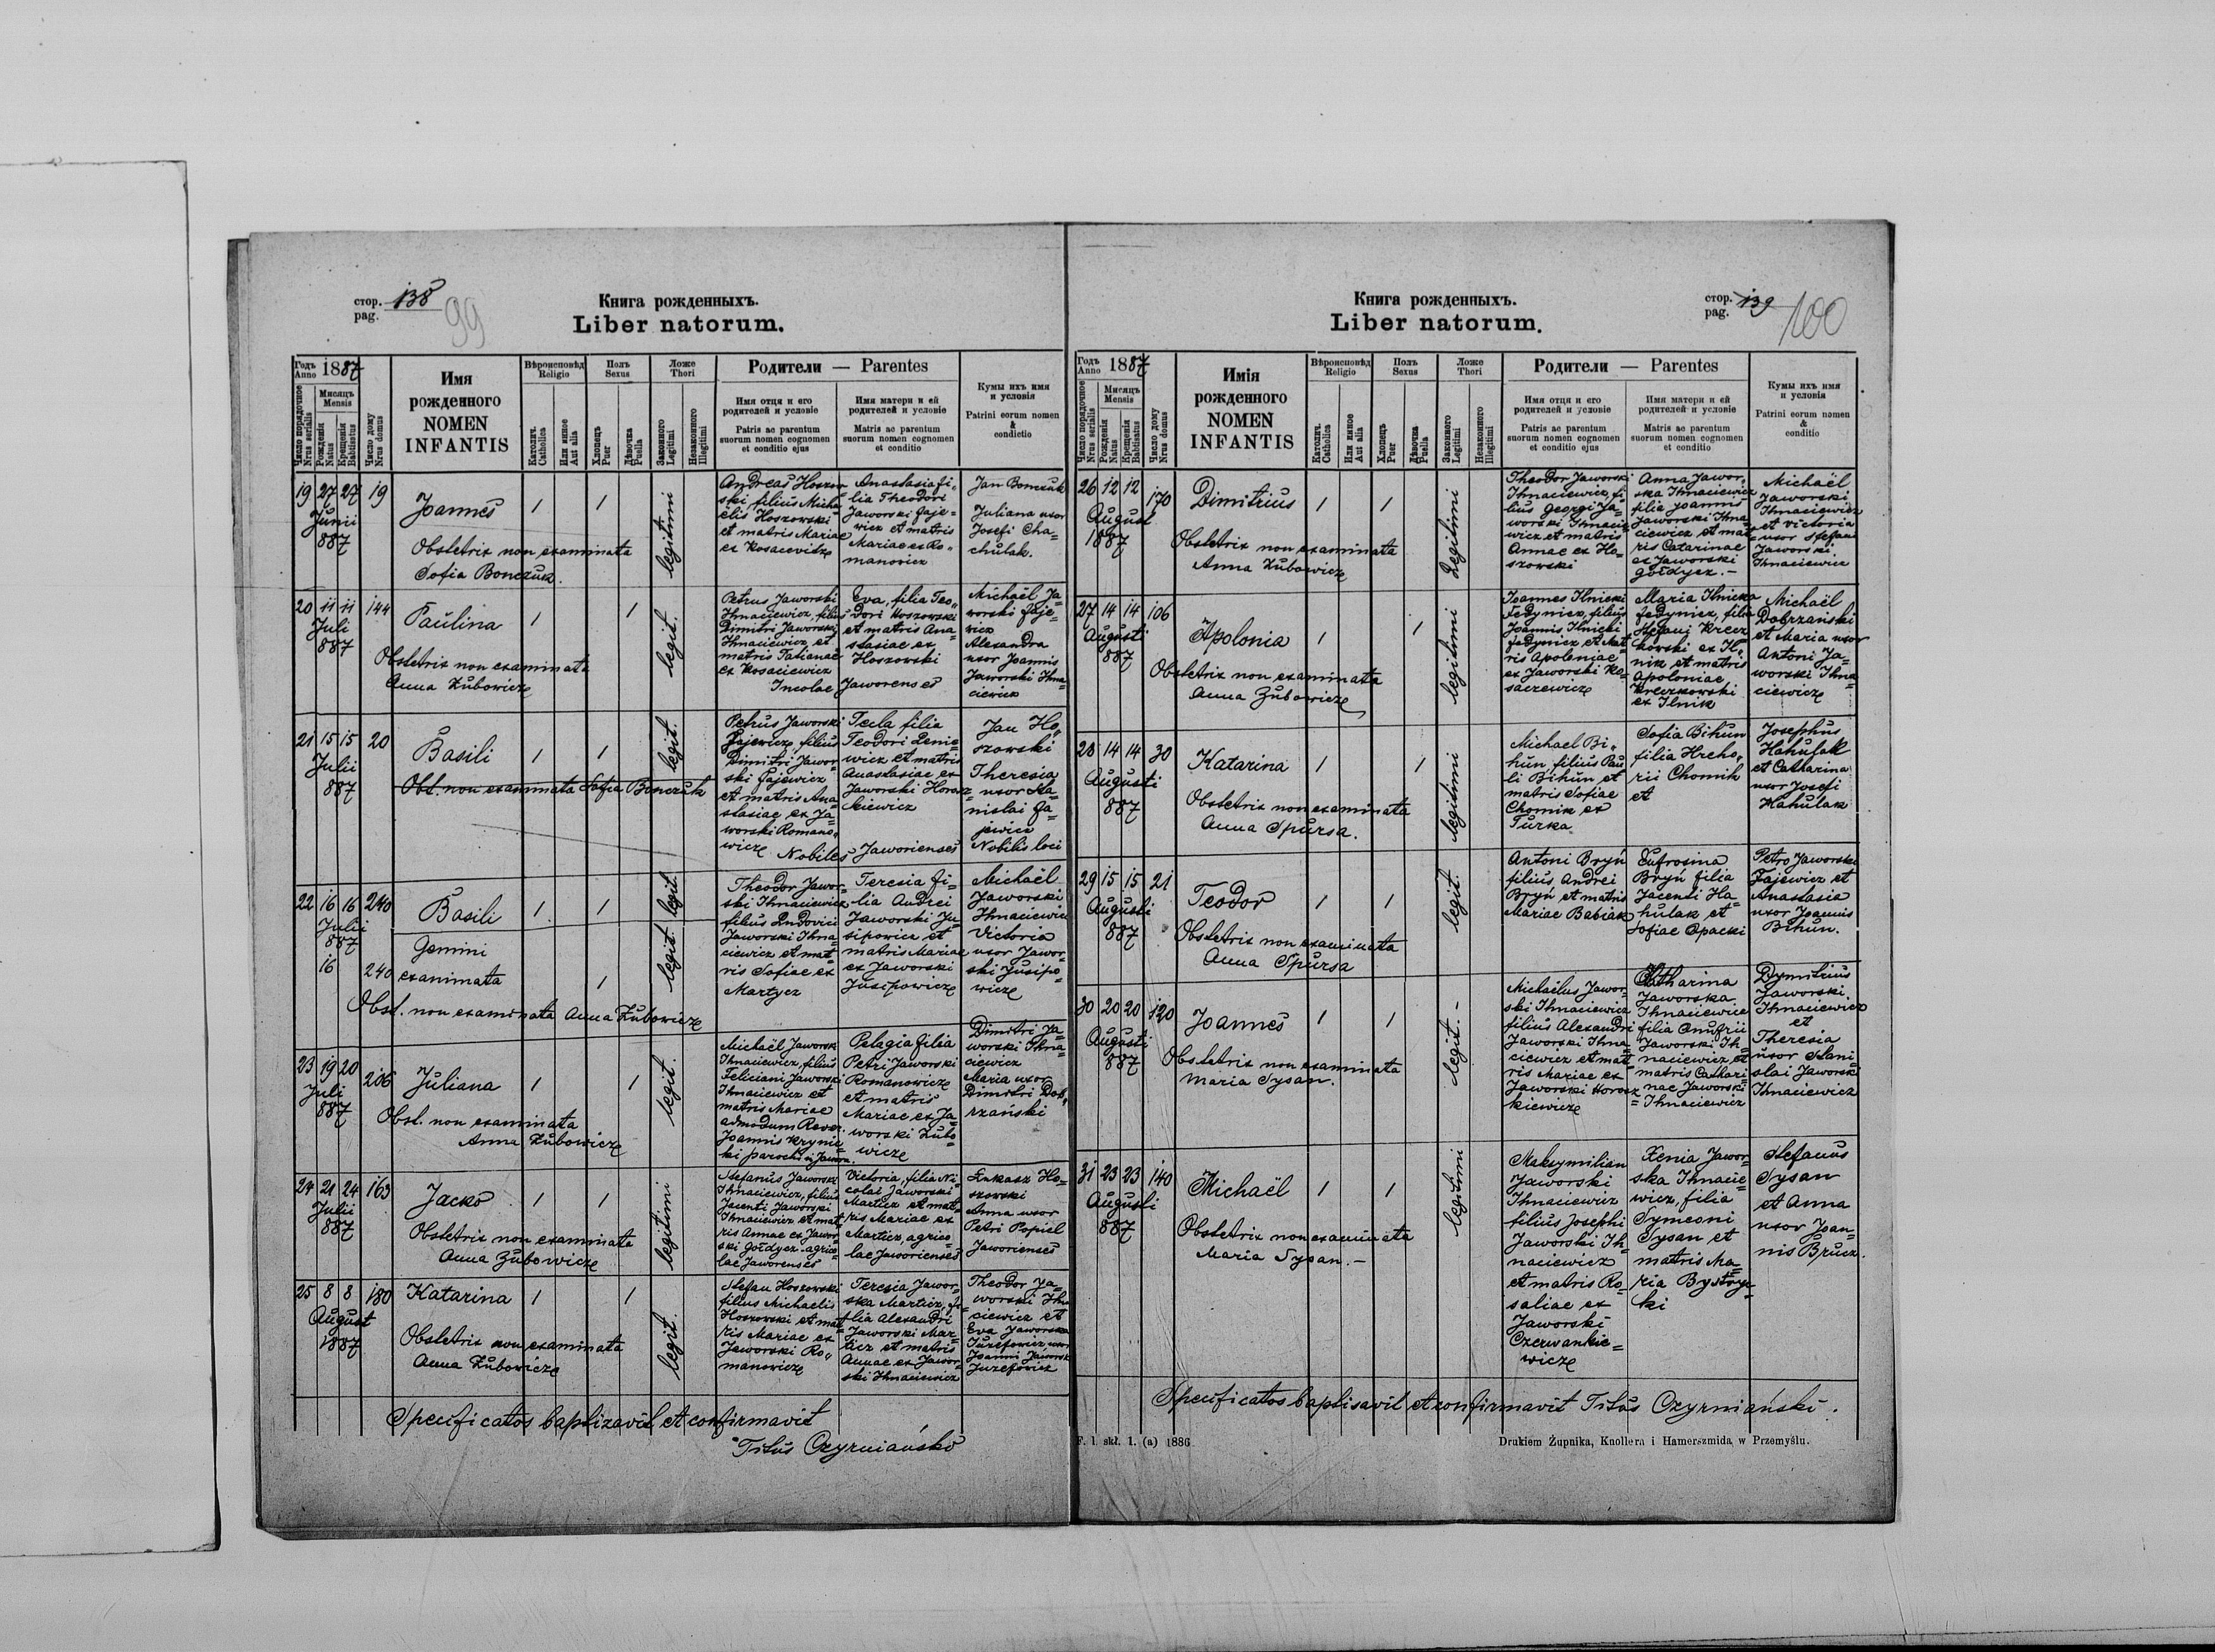 стор. 138
pag.
99
Книга рожденныхъ.
Liber natorum.
Годъ 1887
Anno
Имя
рожденного
NOMEN
INFANTIS
Вѣроисповѣд
Religio
Полъ
Sexus
Ложе
Thori
Родители — Parentes
Мисяцъ
Mensis
Число порядочное
Nrus serialis
Рожденія
Natus
Крещенія
Babtisatus
Число дому
Nrus domus
Католич.
Catholica
Или иное
Aut alia
Хлопецъ
Puer
Дѣвочка
Puella
Законного
Legitimi
Незаконного
Illegitimi
Имя отця и его
родителей и условіе
Patris ac parentum
suorum nomen cognomen
et conditio ejus
Имя матери и ей
родителей и условіе
Matris ac parentum
suorum nomen cognomen
et conditio
Кумы ихъ имя
и условія
Patrini eorum nomen
&
condictio
19 27 27 19
Junii
887
Joannes 1 1
legitimi
Obstetrix non examinata
Sofia Bonczuk.
Andreas Hoszow
ski filius Micha
ëlis Hoszowski
et matris Mariae
ex Kosacewicze
Anastasia fi-
lia Theodori
Jaworski Faje=
wicz et matris
Mariae ex Ro„
manowicz
Jan Bonczuk
Juliana uxor
Josefi Cha=
chulak.
20 11 11 144
Juli
887
Paulina 1 1
legit.
Obstetrix non examinata
Anna Zubowicze
Petrus Jaworski
Ihnaciewicz, filius
Dimitri Jaworski
Ihnaciewicz et
matris Tatianae
ex Kosaciewicz
Incolae Jaworenses
Eva, filia Teo„
dori Hoszowski
et matris Ana=
stasiae ex
Hoszowski
Michaël Ja=
worski Faje=
wicz
Alexandra
uxor Joannis
Jaworski Ihna=
ciewicz
21 15 15 20
Julii
887
Basili 1 1
legit.
Obst. non examinata Sofia Bonczuk
Petrus Jaworski
Fajewicze, filius
Dimitri Jawor=
ski Fajewicz
et matris Ana=
stasiae ex Ja=
worski Romano„
wicze Nobiles Jaworienses
Tecla filia
Teodori Zenie=
wicz et matris
Anastasiae ex
Jaworski Horacz=
kiewicz
Jan Ho„
szowski
Theresia
uxor Sta=
nislai Fa=
jewicz
Nobilis loci
22 16 16 240
Julii
887
Basili 1 1
legit.
Gemini
16 240
exanimata 1
legit.
Obst. non examinata Anna Zubowicze
Theodor Jawor=
ski Ihnaciewicz
filius Ludovici
Jaworski Ihna=
ciewicz et mat=
ris Sofiae ex
Martycz
Teresia fi=
lia Andrei
Jaworski Ju=
sipowicz et
matris Mariae
ex Jaworski
Jusipowicze
Michaël
Jaworski
Ihnaciewicz
Victoria
uxor Jawor=
ski Jusipo=
wicze
23 19 20 206
Juli
887
Juliana 1 1
legit.
Obst. non examinata
Anna Zubowicze
Michaël Jaworski
Ihnaciewicz, filius
Feliciani Jaworski
Ihnaciewicz et
matris Mariae
admodum Rever.
Joannis Krynic=
ki parochi in Jawora.
Pelagia filia
Petri Jaworski
Romanowicze
et matris
Mariae ex Ja=
worski Zubo=
wicze
Dimitri Ja=
worski Ihna=
ciewicz
Maria uxor
Dimitri Dob„
rzański
24 21 24 163
Julii
887
Jacko 1 1
legitimi
Obstetrix non examinata
Anna Zubowicze
Stefanus Jaworski
Ihnaciewicz, filius
Jacenti Jaworski
Ihnaciewicz et mat=
ris Annae ex Jawor=
ski Gołdycz agrico=
lae Jaworenses
Victoria, filia Ni=
colai Jaworski
Marticz et mat=
ris Mariae ex
Marticz, agrico=
lae Jaworienses
Lukasz Ho=
szowski
Anna uxor
Petri Popiel
Jaworienses
25 8 8 180
August
1887
Katarina 1 1
legit.
Obstetrix non examinata
Anna Zubowicze
Stefan Hoszowski
filius Michaelis
Hoszowski et mat=
ris Mariae ex
Jaworski Ro„
manowicze
Teresia Jawor=
ska Marticz, fi=
lia Alexandri
Jaworski Mar=
ticz et matris
Annae ex Jawor=
ski Ihnaciewicz
Theodor Ja=
worski Ihna
ciewicz et
Eva Jaworska
Juzefowicz uxor
Joanni Jaworski
Juzefowicz
Specificatos baptizavit et confirmavit
Titus Czyrniański
Книга рожденныхъ.
Liber natorum.
стор. 139
pag.
100
Годъ 1887
Anno
Имія
рожденного
NOMEN
INFANTIS
Вѣроисповѣд
Religio
Полъ
Sexus
Ложе
Thori
Родители — Parentes
Мисяцъ
Mensis
Число порядочное
Nrus serialis
Рожденія
Natus
Крещенія
Babtisatus
Число дому
Nrus domus
Католич.
Catholica
Или иное
Aut alia
Хлопецъ
Puer
Дѣвочка
Puella
Законного
Legitimi
Незаконного
Illegitimi
Имя отця и его
родителей и условіе
Patris ac parentum
suorum nomen cognomen
et conditio ejus
Имя матери и ей
родителей и условіе
Matris ac parentum
suorum nomen cognomen
et conditio
Кумы ихъ имя
и условія
Patrini eorum nomen
&
conditio
26 12 12 170
August
1887
Dimitrius 1 1
Legitimi
Obstetrix non examinata
Anna Zubowicze
Theodor Jaworski
Ihnaciewicz, fi=
lius Georgi Ja=
worski Ihnacie=
wicz et matris
Annae ex Ho=
szowski
Anna Jawor„
ska Ihnaciewicz
filia Joannis
Jaworski Ihna=
ciewicz et mat=
ris Catarinae
ex Jaworski
Gołdycz.-
Michaël
Jaworski
Ihnaciewicz
et Victoria
uxor Stefani
Jaworski
Ihnaciewicz
27 14 14 106
Augusti
887
Apolonia 1 1
legitimi
Obstetrix non examinata
Anna Zubowicze
Joannes Ilnicki
Fedynicz, filius
Joannis Ilnicki
Fedynicz et Mat=
ris Apoloniae
ex Jaworski Ko=
saczewicze
Maria Ilnicka
Fedynicz, filia
Stefani Krecz
kowski ex Il„
nik et matris
Apoloniae
Kreczkowski
ex Ilnik
Michaël
Dobrzański
et Maria uxor
Antoni Ja=
worski Ihna=
ciewicze
28 14 14 30
Augusti
887
Katarina 1 1
legitimi
Obstetrix non examinata
Anna Spursa.
Michael Bi„
hun, filius Pau
li Bihun et
matris Sofiae
Chomik ex
Turka
Sofia Bihun
filia Hreho„
rii Chomik
et
Josephus
Hahulak
et Catharina
uxor Josefi
Hahulak
29 15 15 21
Augusti
887
Teodor 1 1
legit.
Obstetrix non examinata
Anna Spursa
Antoni Bryń
filius Andrei
Bryń et matris
Mariae Babiak
Eufrosina
Bryń filia
Jacenti Ha=
hulak et
Sofiae Opacki
Petro Jaworski
Fajewicz et
Anastasia
uxor Joannis
Bihun.
30 20 20 120
Augusti
887
Joannes 1 1
legit.-
Obstetrix non examinata
Maria Sysan.
Michaëlus Jawor=
ski Ihnaciewicz
filius Alexandri
Jaworski Ihna
ciewicz et mat=
ris Mariae ex
Jaworski Horacz=
kiewicze
Catharina
Jaworska
Ihnaciewicz
filia Onufrii
Jaworski Ih=
naciewicz, et
matris Cathari=
nae Jaworski
Ihnaciewicz
Dymitrius
Jaworski
Ihnaciewicz
et
Theresia
uxor Stani
slai Jaworski
Ihnaciewicz
31 23 23 140
Augusti
887
Michaël 1 1
legitimi
Obstetrix non examinata
Maria Sysan.-
Maksymilian
Jaworski
Ihnaciewicz
filius Josephi
Jaworski Ih=
naciewicz
et matris Ro=
saliae ex
Jaworski
Czerwankie=
wicze
Xenia Jawor=
ska Ihnacie=
wicz, filia
Symeoni
Sysan et
matris Ma=
ria Bystryc=
ki
Stefanus
Sysan
et Anna
uxor Joan=
nis Brucz.
Specificatos baptisavit et confirmavit Titus Czyrniański.
F. l. skł. 1. (a) 1886
Drukiem Żupnika, Knollera i Hamerszmida, w Przemyślu.